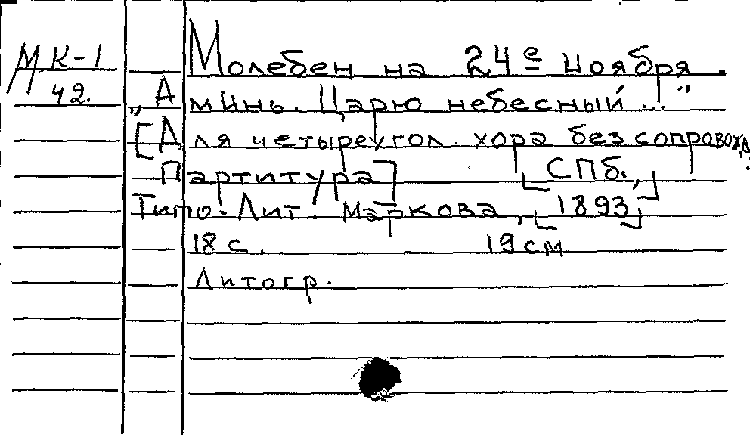 МК-1
42.
Молебен на 24е ноября.
„Аминь. Царю небесный..."
[Для четыреугол. хора без сопровожд.
Партитура] [СПб.,]
Типо-Лит. Маркова, [1893]
18 с. 19 см
Литогр.